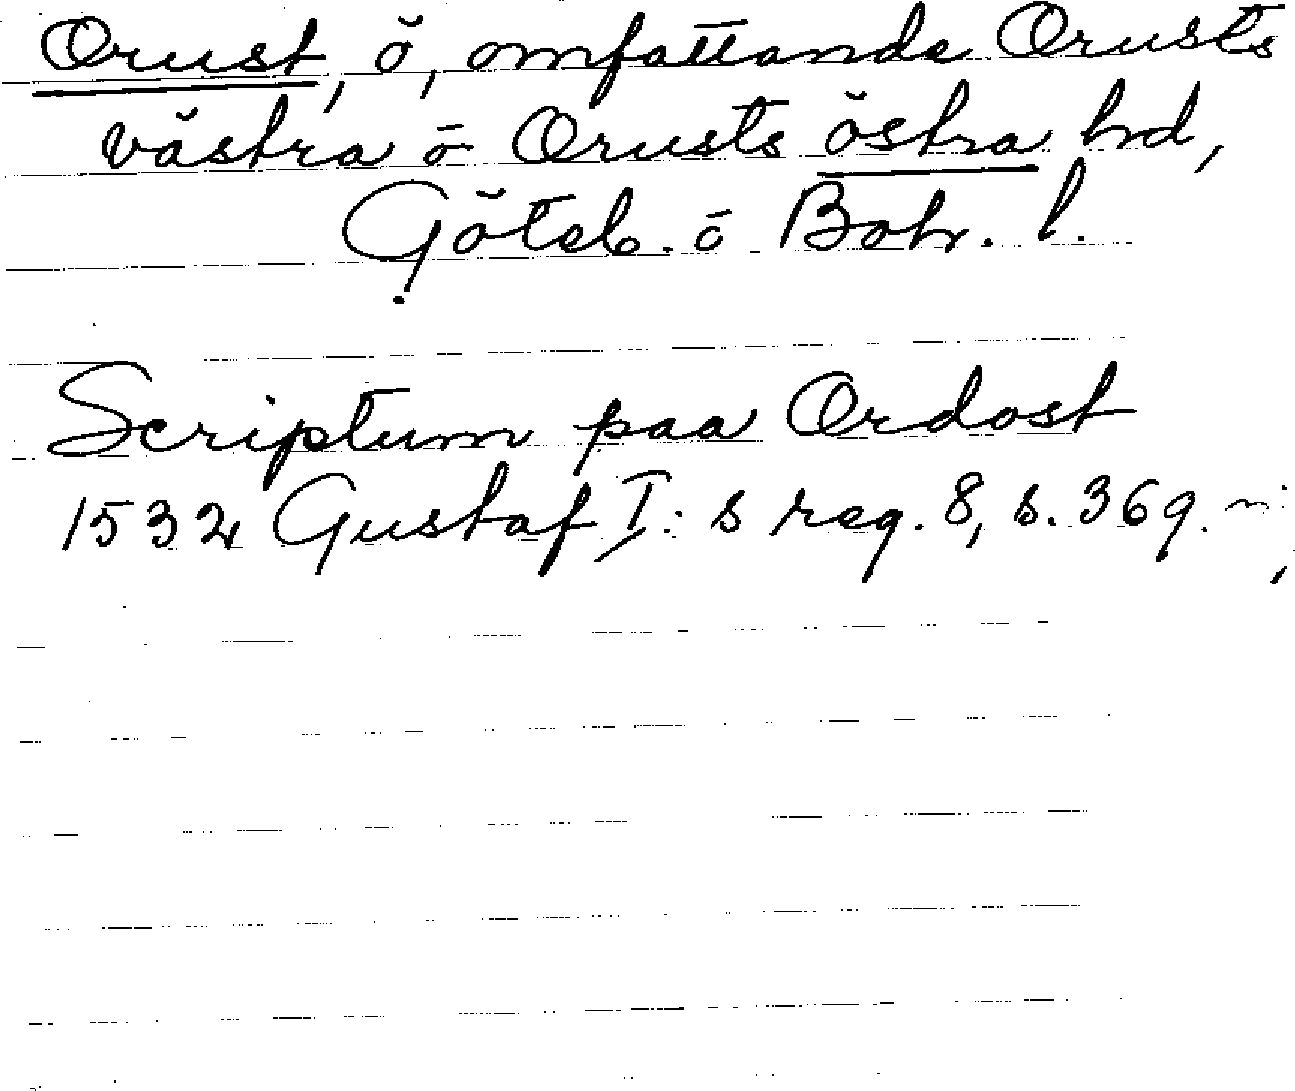 Orust, ö, omfattande Orusts
västra ō Orusts östra hd,
Göteb. ō Boh. l.
Scriptum paa Ordost
1532 Gustaf I:s reg. 8, s. 369.